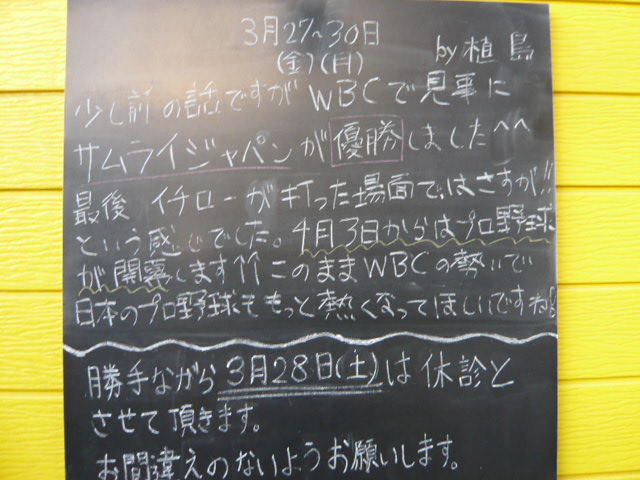 3月27〜30日
(金) (月)
by植島
少し前の話ですがWBCで見事に
サムライジャパンが優勝しました^^
最後 イチローが打った場面ではさすが!!
という感じでした。4月3日からはプロ野球
が開幕します↑↑このままWBCの勢いで
日本のプロ野球ももっと熱くなってほしいですね!
勝手ながら3月28日(土)は休診と
させて頂きます。
お間違えのないようお願いします。